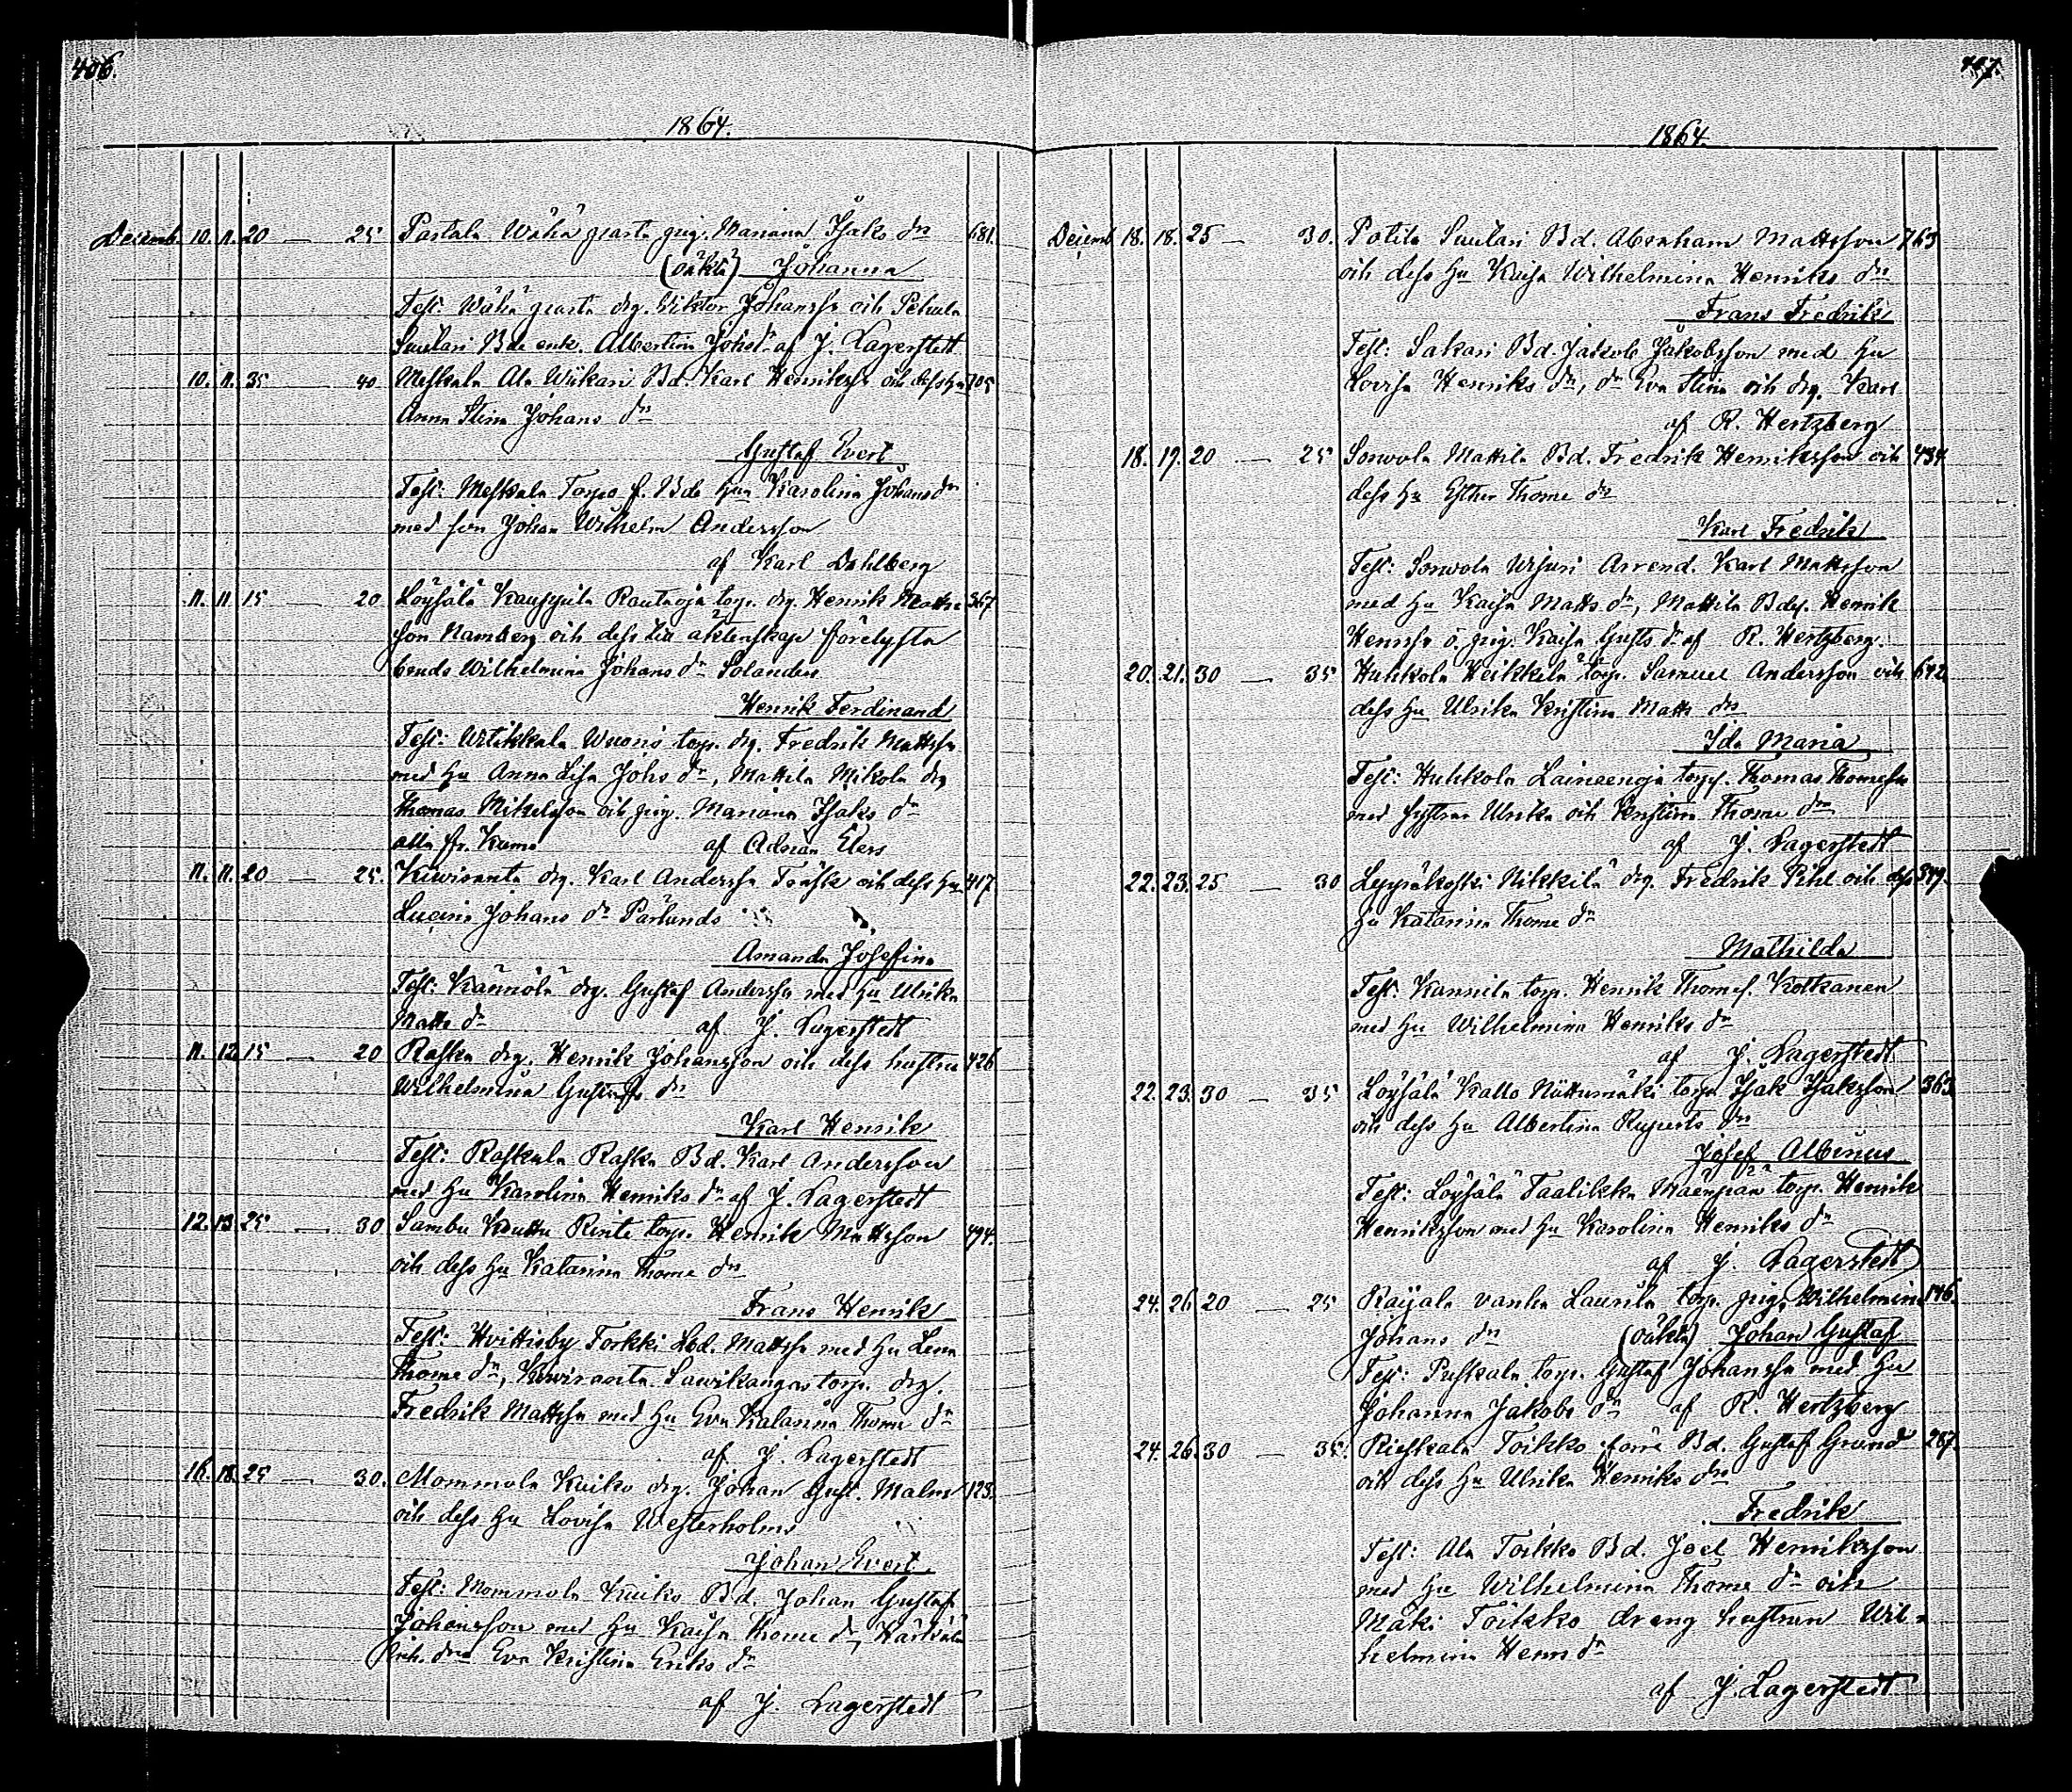 406.
1864.
Decemb. 10. 11. 20 — 25 Pastala Wähä prasta pig. Mariana Isaks dr 681.
(oäkta) Johanna
Test: Wähä prasta drg. Wiktor Johanss. och Pehula
Suutari Bde enk. Albertina Johs dr af J. Lagerstedt
10. 11. 35 40 Meskala Ala Wiikari Bd. Karl Henrikss. och dess Hu 705
Anna Stina Johans dr
Gustaf Evert
Test: Meskala Torpo f. Bde Hu Karolina Johans dr
med son Johan Wilhelm Andersson
af Karl Dahlberg
11. 11 15 — 20 Löysälä Rautaoja torp. drg. Henrik Matts- 367
son Namberg och dess till äktenskap förelysta
bruds Wilhelmina Johans dr Solanders
Henrik Ferdinand
Test: torp. drg. Fredrik Mattss.
med Hu Anna Lisa Johs dr, Mattila Mikola drg
Thomas Mikelsson och pig. Mariana Isaks dr
alla fr. Kumo af Adrian Elers
11. 11. 20 — 25. Kiviranta drg. Karl Anderss. Träsk och dess Hu 417.
Lucina Johans dr Pärlunds
Amanda Josefina
Test: Kännölä drg. Gustaf Anderss. med Hu Ulrika
Matts dr af J. Lagerstedt
11. 12 15 — 20 Raska drg. Henrik Johansson och dess hustru 426
Wilhelmina Gustafs dr
Karl Henrik
Test: Raskala Raska Bd. Karl Andersson
med Hu Karolina Henriks dr af J. Lagerstedt
12. 13 25 — 30 Sambu Kuttu Rinte torp. Henrik Mattsson 494.
och dess Hu Katarina Thome dr
Frans Henrik
Test: Hvittisby Torkki Lbd. Mattss. med Hu Lena
Thome dr, Kiviranta Sawikangas torp. drg.
Fredrik Mattss. med Hu Eva Katarina Thome dr
af J. Lagerstedt
16. 18. 25 — 30. Mommola Kuiko drg. Johan Gust. Malm 123.
och dess Hu Lovisa Westerholms
Johan Evert
Test: Mommola Kuiko Bd. Johan Gustaf
Johansson med Hu Kaisa Thome dr, Härkälä
Eva Kristina Eriks dr
af J. Lagerstedt
407.
1864.
Decemb 18. 18. 25 — 30. Potila Suutari Bd. Abraham Mattsson 763
och dess Hu Kaisa Wilhelmina Henriks dr
Frans Fredrik
Test: Sakari Bd. Jakob Jakobsson med Hu
Lovisa Henriks dr, dr Eva Stina och drg. Karl
af R. Hertzberg
18. 19. 20 — 25 Sorwola Mattila Bd. Fredrik Henriksson och 434
dess Hu Esther Thome dr
Karl Fredrik
Test: Sorwola Uusuri Arrend. Karl Mattsson
med Hu Kaisa Matts dr, Mattila Bds. Henrik
Henrss. o. pig. Kaisa Gusts dr af R. Hertzberg.
20. 21. 30 — 35 Huhkola Heikkilä torp. Samuel Andersson och 642
dess Hu Ulrika Kristina Matts dr
Ida Maria
Test: Huhkola Laineenoja torp. Thomas Thomess.
med systrar Ulrika och Kristina Thome dr
af J. Lagerstedt
22. 23. 25 — 30 Leppäkoski Nikkilä drg. Fredrik Pihl och dess 349.
Hu Katarina Thome dr
Mathilda
Test. Kannila torp. Henrik Thomes. Kotkanen
med Hu Wilhelmina Henriks dr
af J. Lagerstedt
22. 23. 30 — 35 Löysälä Kallo Niittumäki torp. Isak Isaksson 363
och dess Hu Albertina Ruperts dr
Josef Albinus
Test: Löysälä Taalikka Mäenpää torp. Henrik
Henriksson med Hu Karolina Henriks dr
af J. Lagerstedt
24. 26 20 — 25 Raijala vanha Laurila torp. pig. Wilhelmina 146.
Johans dr (oäkta) Johan Gustaf
Test: Puskala torp. Gustaf Johanss. med Hu
Johanna Jakobs dr af R. Hertzberg
24. 26. 30 — 35. Rieskala Toikko förre Bd. Gustaf Grund 287.
och dess Hu Ulrika Henriks dr
Fredrik
Test: Ala Toikko Bd. Joel Henriksson
med Hu Wilhelmina Thome dr och
Mäki Toikko dreng hustrun Wil-
helmina Henrs dr
af J. Lagerstedt